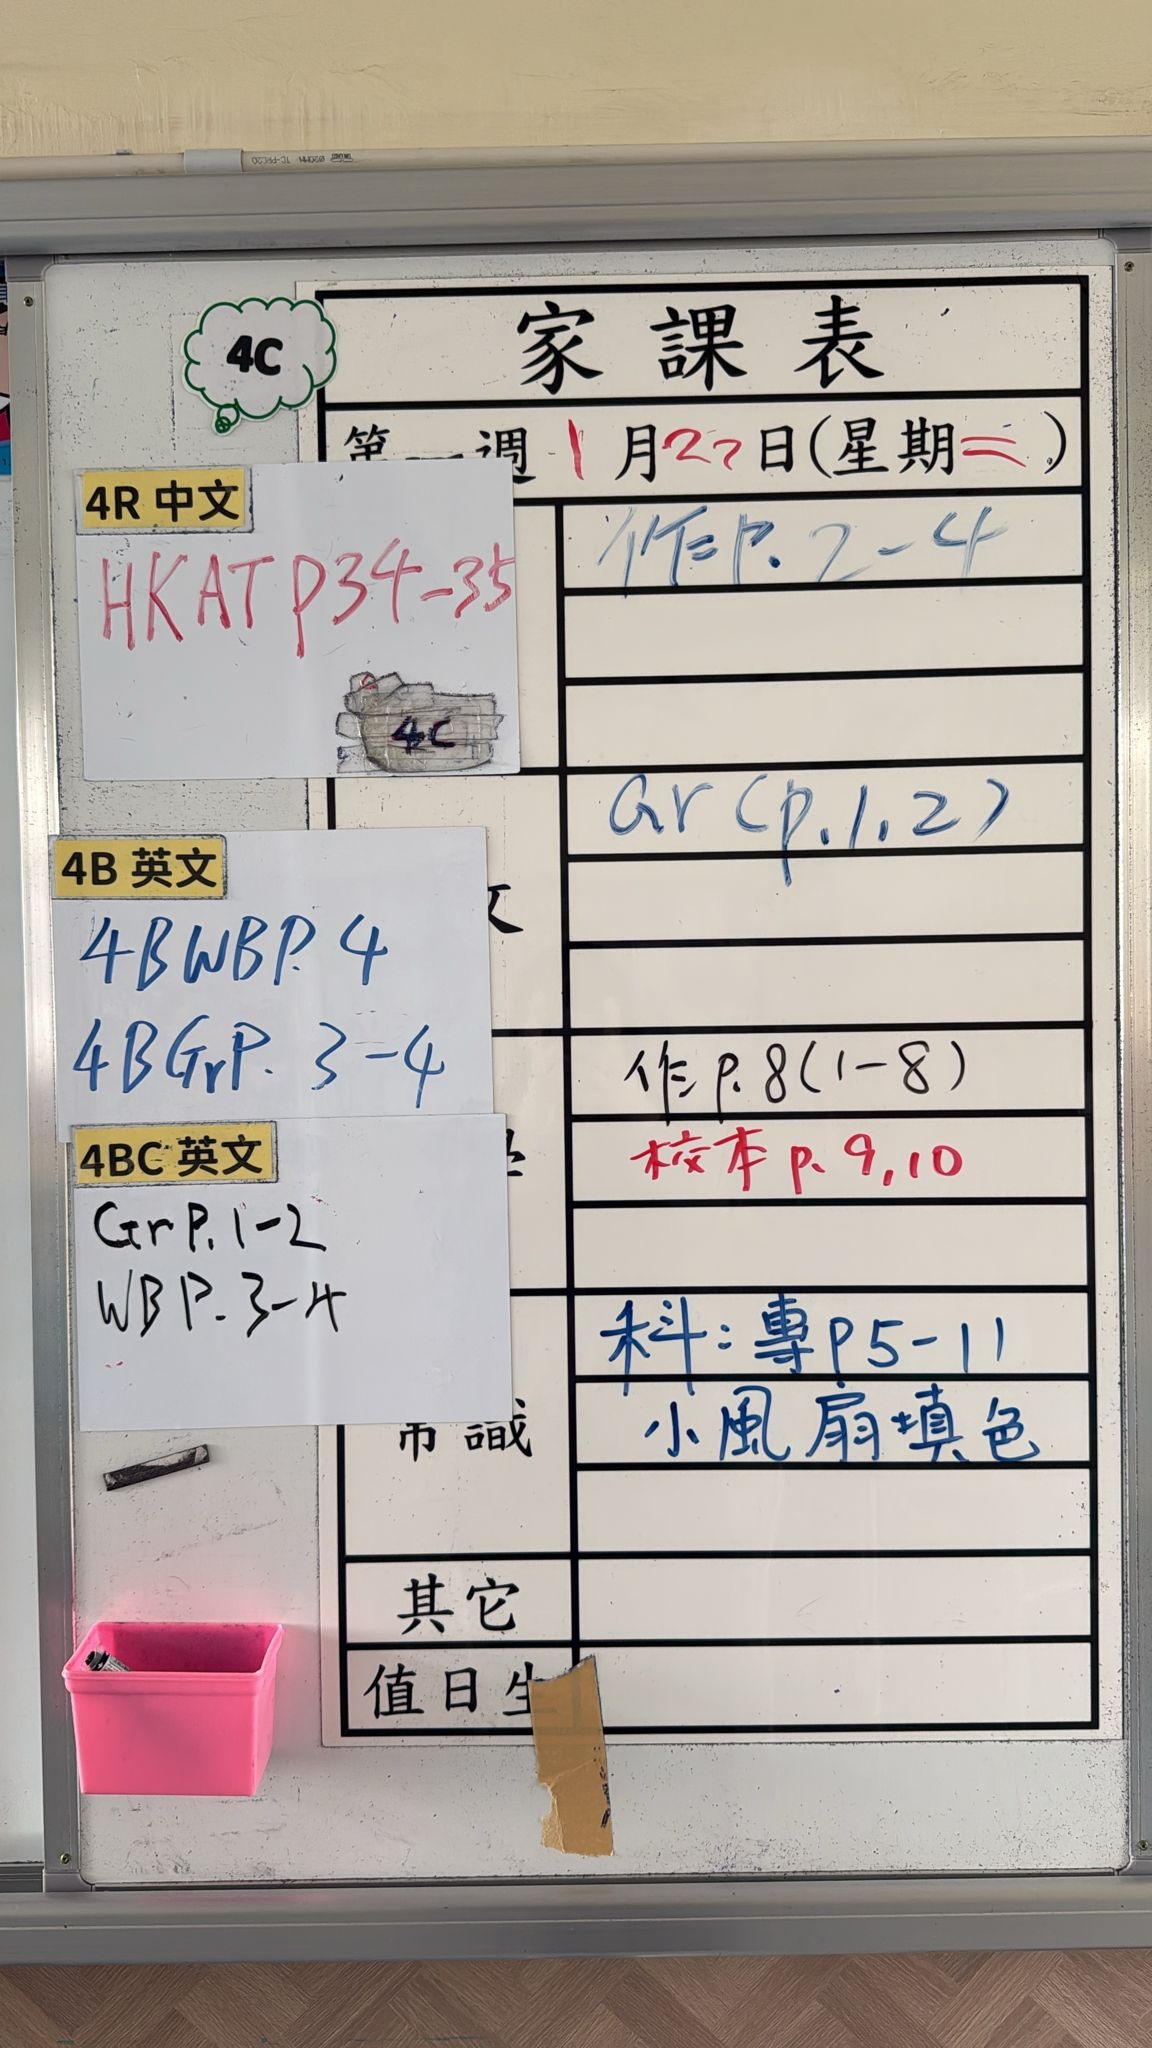 4C
家課表
第一週 1月27日(星期二)
4R 中文
HKAT P34-35
4C
作P. 2-4
Gr (p.1,2)
4B 英文
4BWBP. 4
4BGrP. 3-4
文
作 P. 8(1-8)
校本 p. 9,10
4BC 英文
Gr P. 1-2
WB P. 3-4
科:專P5-11
常識
小風扇填色
其它
值日生